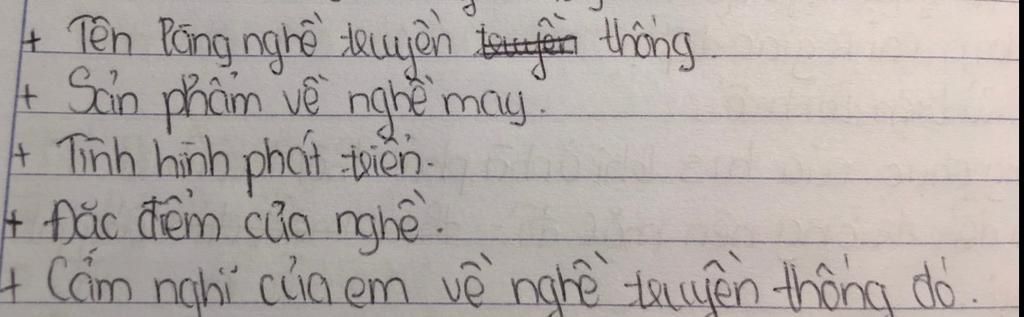 + Tên làng nghề truyền truyền thống.
+ Sản phẩm về nghề may.
+ Tình hình phát triển.
+ Đặc điểm của nghề.
+ Cảm nghĩ của em về nghề truyền thống đó.